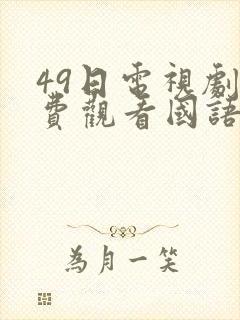 49日電視劇
費觀看國語
為月一笑